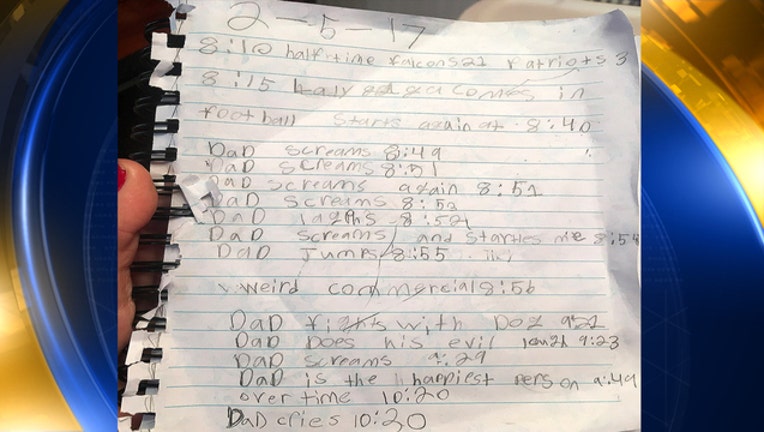 2-5-17
8:10 half-time falcons 21 Patriots 3
8:15 Lady gaga comes in
football starts again at 8:40
DaD screams 8:49
DaD screams 8:51
DaD screams again 8:51
DaD screams 8:53
DaD laghs 8:54
DaD screams and startles me 8:54
DaD Jumps 8:55
weird commercial 8:56
DaD fights with Dog 9:21
DaD Does his evil 9:23
DaD screams 9:29
DaD is the happiest person 9:49
overtime 10:20
DaD cries 10:20